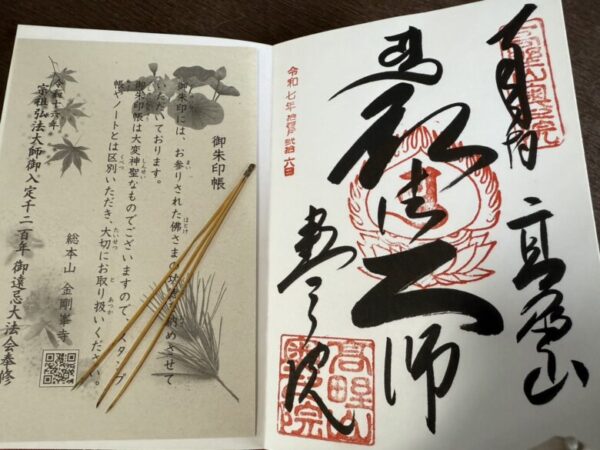 御朱印帳
御朱印には、お参りされた佛さまの を納めさせて
いただいております。
御朱印帳は大変神聖なものでございますので、スタンプ
帳、ノートとは区別いただき、大切にお取り扱いください。
総本山 金剛峯寺
令和十六年。
宗祖弘法大師御入定千二百年 御遠忌大法会奉修
高野山奥之院
高野山
弘法大師
奥之院
令和七年
六日
高野山奥之院